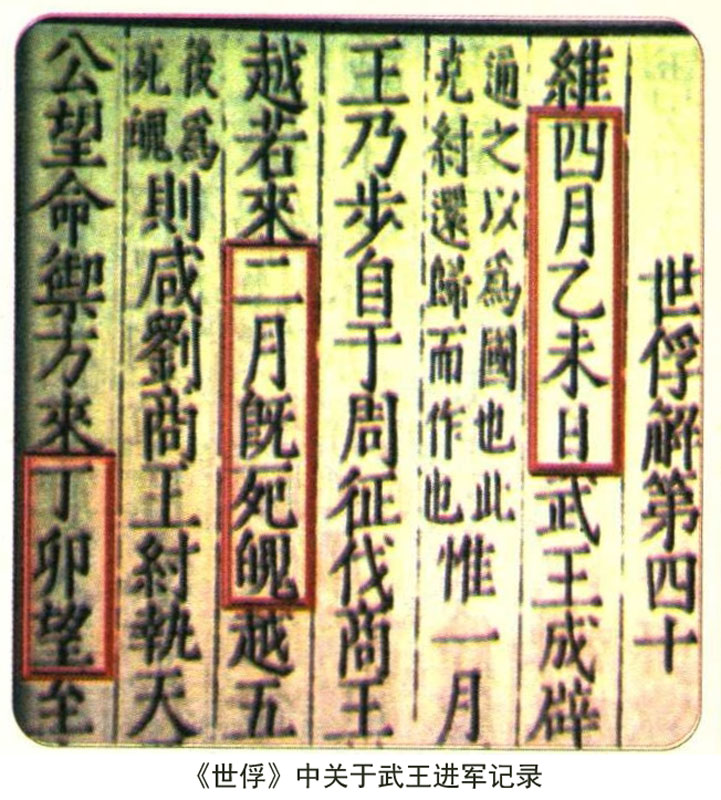 世俘解第四十
維四月乙未日武王成辟
通之以爲國也此
克紂還歸而作也
惟一月
王乃步自于周征伐商王
越若來二月旣死魄越五
後爲
死魄
則咸劉商王紂執天
公望命禦方來丁卯望至
《世俘》中关于武王进军记录